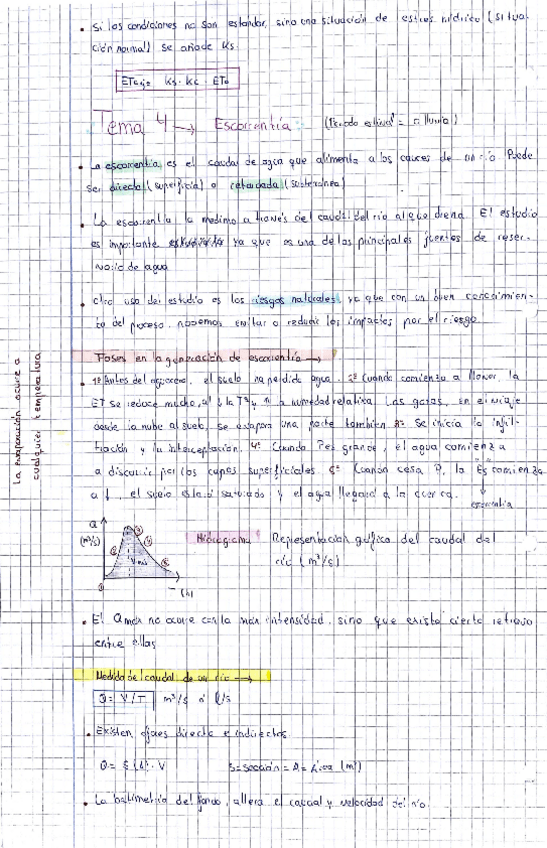 • Si las condiciones no son estandar, sino una situación de estrés hídrico (situa-
ción normal) se añade Ks
ETc aj = Ks · Kc · ETo
Tema 4 → Escorrentía: (Periodo estival = lluvia)
• La escorrentía es el caudal de agua que alimenta a los cauces de un río Puede
ser directa (superficial) o retardada (subterránea)
• La escorrentía la medimos a través del caudal del río al que drena. El estudio
es importante ya que es una de las principales fuentes de reser-
vorio de agua
• Otro uso del estudio es los riesgos naturales, ya que con un buen conocimien-
to del proceso, podemos evitar o reducir los impactos por el riesgo.
Fases en la generación de escorrentía →
• 1º Antes del aguacero, el suelo ha perdido agua. 2º Cuando comienza a llover, la
ET se reduce mucho, al ↓ la Tª y ↑ la humedad relativa. Las gotas, en el viaje
desde la nube al suelo, se evapora una parte también 3º Se inicia la infil-
tración y la interceptación. 4º Cuando P es grande, el agua comienza
a discurrir por las capas superficiales. 5º Cuando cesa P, la Es comienza
a ↓, el suelo está saturado y el agua llegará a la cuenca.
escorrentía
La evaporación ocurre a
cualquier temperatura
Q
(m³/s)
(h)
Hidrograma Representación gráfica del caudal del
río (m³/s)
• El Qmax no ocurre con la max intensidad, sino que existe cierto retraso
entre ellas
Medida del caudal de un río →
Q = V/T m³/s ó l/s
• Existen aforos directo e indirectos
Q = S (A) · V S = sección = A = Área (m²)
• La batimetría del fondo, altera el caudal y velocidad del río.